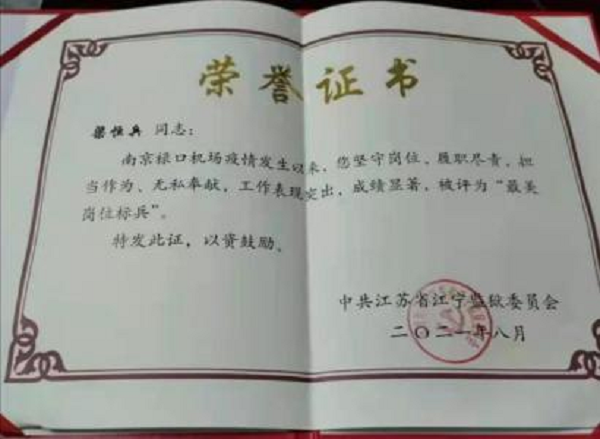 荣誉证书
梁恒兵 同志：
南京禄口机场疫情发生以来，您坚守岗位、履职尽责，担
当作为、无私奉献，工作表现突出，成绩显著，被评为“最美
岗位标兵”。
特发此证，以资鼓励。
中共江苏省江宁监狱委员会
二〇二一年八月